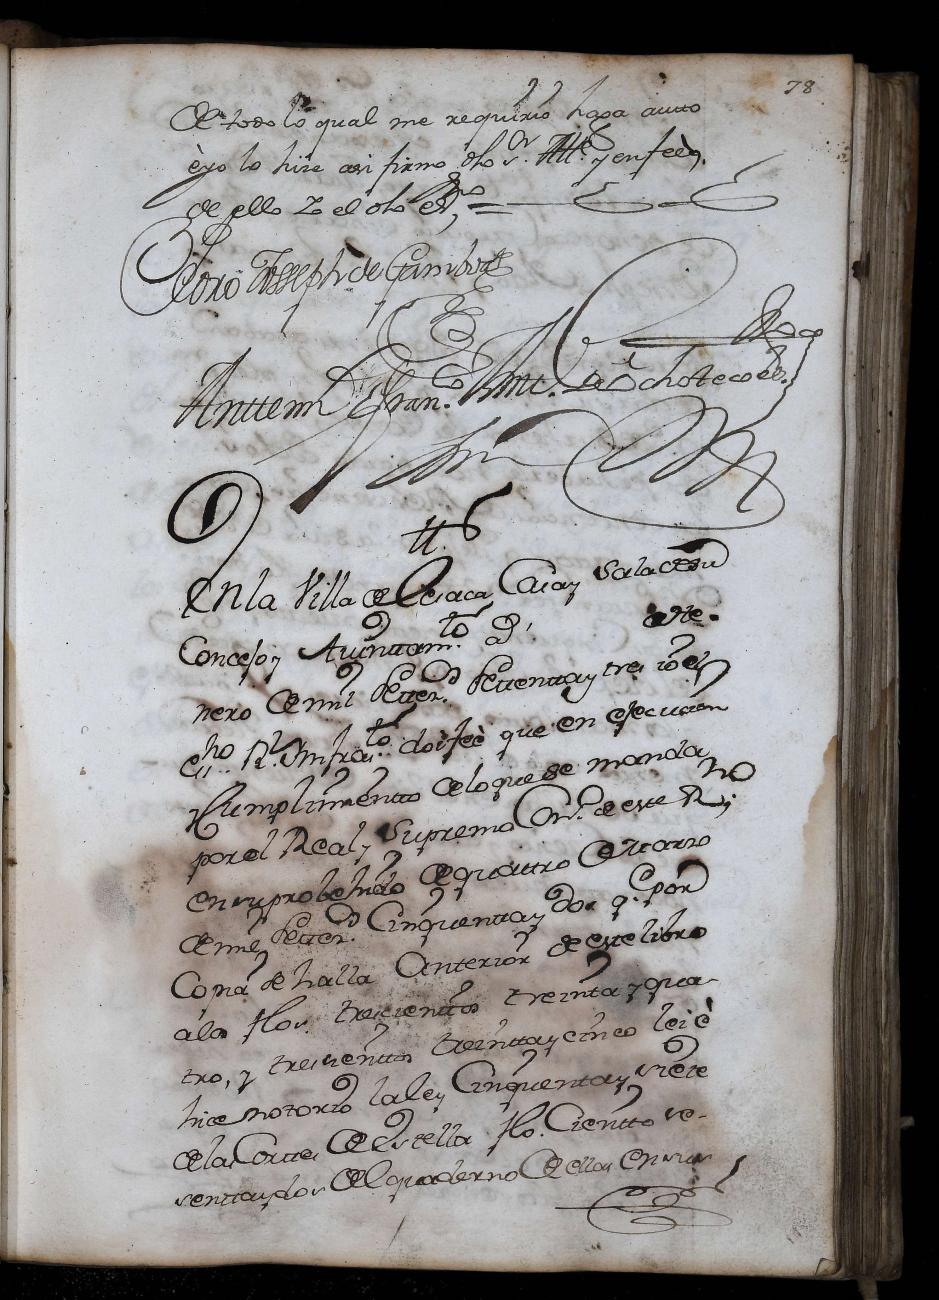 78
De todo lo qual me requirio haga autto
è yo lo hize asi firmo dho s.r Alld.e y en feè
de ello Yo el dho es.no =
Pedro Joseph de Gamboa
Anttemi Fran.co Ant.o de Ochotecoes.no
En la Villa de Lesaca Casa y Sala de su
Concejo y Aiuntam.to à siete de
nero de mil settez.s settenta y tres io el
es.no R.l Infraes.to doi feè que en ejecucion
y Cumplimentto de lo que se manda
por el Real y Supremo Con.o de este R.no
en su probehido de quattro de Marzo
de mil settez.s Cinquenta y dos q.e por
Copia se halla Anterior de este libro
a los flos. trescientos treinta y qua-
tro, y trescientos treinta y cinco lei è
hice notorio la ley Cinquenta y siete
de las Cortes de Estella flo. Ciento se-
senta y dos del quaderno de ellas en sus